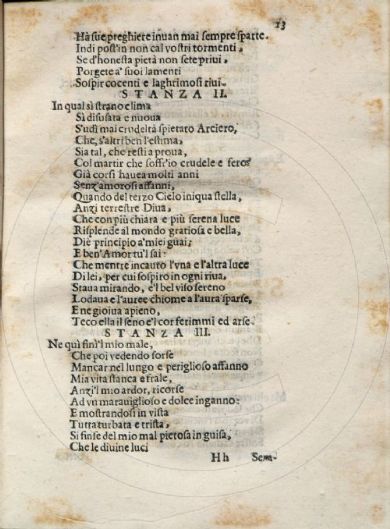 13
Hà sue preghiere inuan mai sempre sparte.
Indi post'in non cal vostri tormenti,
Se d'honesta pietà non sete priui,
Porgete a' suoi lamenti
Sospir cocenti e laghrimosi riui.
STANZA II.
In qual sì strano clima
Sì disusata e nuoua
S'udì mai crudeltà spietato Arciero,
Che, s'altri ben l'estima,
Sia tal, che resti a proua,
Col martir che soffr'io crudele e fero?
Già corsi hauea molti anni
Senz'amorosi affanni,
Quando del terzo Cielo iniqua stella,
Anzi terrestre Diua,
Che con più chiara e più serena luce
Risplende al mondo gratiosa e bella,
Diè principio a'miei guai;
E ben' Amor tu'l sai:
Che mentre incauto l'vna e l'altra luce
Di lei, per cui sospiro in ogni riua,
Staua mirando, e'l bel viso sereno
Lodaua e l'auree chiome a l'aura sparse,
E ne gioiua apieno,
Teco ella il seno e'l cor ferimmi ed arse.
STANZA III.
Ne quì finì'l mio male,
Che poi vedendo forse
Mancar nel lungo e periglioso affanno
Mia vita stanca e frale,
Anzi'l mio ardor, ricorse
Ad vn marauiglioso e dolce inganno:
E mostrandosi in vista
Tutta turbata e trista,
Si finse del mio mal pietosa in guisa,
Che le diuine luci
Hh Sem-